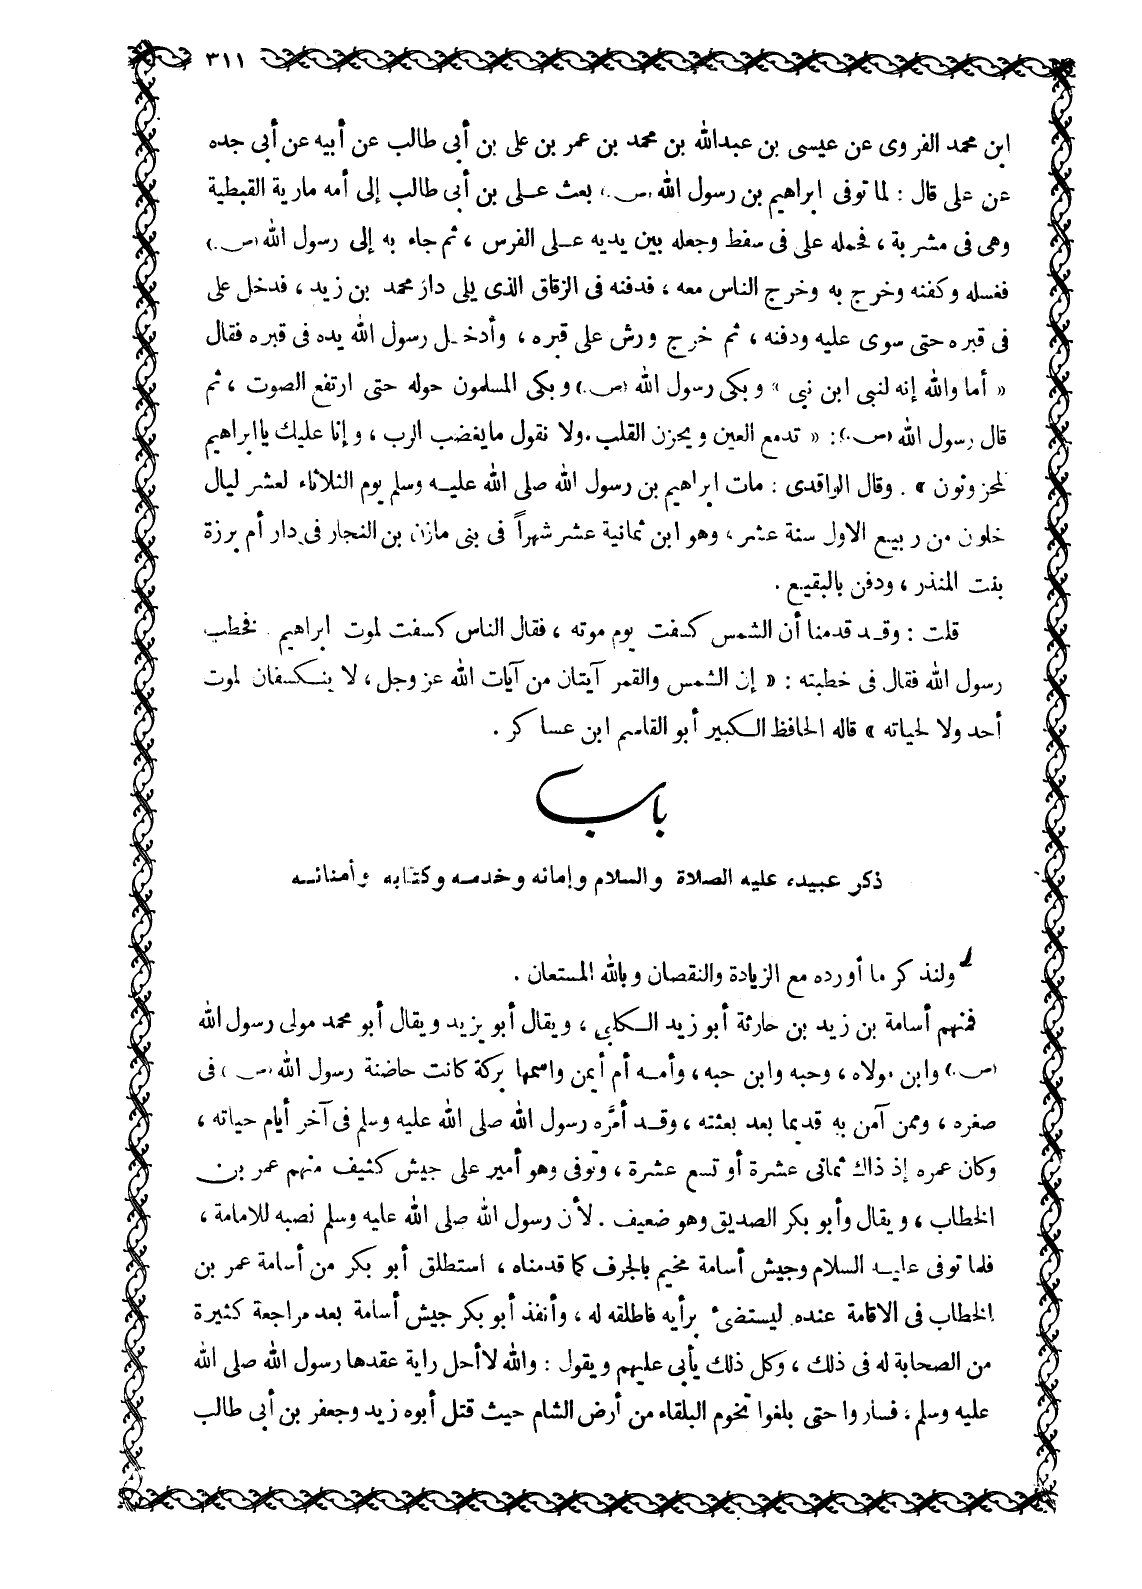 ٣١١
ابن محمد الفروى عن عيسى بن عبدالله بن محمد بن عمر بن على بن أبى طالب عن أبيه عن أبى جده
عن على قال : لما توفى ابراهيم بن رسول الله (ص.) بعث على بن أبى طالب إلى أمه مارية القبطية
وهى فى مشربة ، فحمله على فى سفط وجعله بين يديه على الفرس ، ثم جاء به إلى رسول الله (ص.)
فغسله وكفنه وخرج به وخرج الناس معه ، فدفنه فى الزقاق الذى يلى دار محمد بن زيد ، فدخل على
فى قبره حتى سوى عليه ودفنه ، ثم خرج ورش على قبره ، وأدخل رسول الله يده فى قبره فقال
« أما والله إنه لنبى ابن نبى » وبكى رسول الله (ص.) وبكى المسلمون حوله حتى ارتفع الصوت ، ثم
قال رسول الله (ص.): « تدمع العين ويحزن القلب . ولا نقول ما يغضب الرب ، وإنا عليك يا ابراهيم
لمحزونون » . وقال الواقدى : مات ابراهيم بن رسول الله صلى الله عليه وسلم يوم الثلاثاء لعشر ليال
خلون من ربيع الاول سنة عشر ، وهو ابن ثمانية عشر شهراً فى بنى مازن بن النجار فى دار أم برزة
بنت المنذر ، ودفن بالبقيع .
قلت : وقد قدمنا أن الشمس كسفت يوم موته ، فقال الناس كسفت لموت ابراهيم . فخطب
رسول الله فقال فى خطبته : « إن الشمس والقمر آيتان من آيات الله عز وجل ، لا ينكسفان لموت
أحد ولا لحياته » قاله الحافظ الكبير أبو القاسم ابن عساكر .
باب
ذكر عبيده عليه الصلاة والسلام وإمائه وخدمه وكتابه وأمنائه
ولنذكر ما أورده مع الزيادة والنقصان وبالله المستعان .
فمنهم أسامة بن زيد بن حارثة أبو زيد الكلبى ، ويقال أبو يزيد ويقال أبو محمد مولى رسول الله
(ص.) وابن مولاه ، وحبه وابن حبه ، وأمه أم أيمن واسمها بركة كانت حاضنة رسول الله (ص.) فى
صغره ، وممن آمن به قديما بعد بعثته ، وقد أمَّره رسول الله صلى الله عليه وسلم فى آخر أيام حياته ،
وكان عمره إذ ذاك ثمانى عشرة أو تسع عشرة ، وتوفى وهو أمير على جيش كثيف منهم عمر بن
الخطاب ، ويقال وأبو بكر الصديق وهو ضعيف . لأن رسول الله صلى الله عليه وسلم نصبه للامامة ،
فلما توفى عليه السلام وجيش أسامة مخيم بالجرف كما قدمناه ، استطلق أبو بكر من أسامة عمر بن
الخطاب فى الاقامة عنده ليستضىء برأيه فاطلقه له ، وأنفذ أبو بكر جيش أسامة بعد مراجعة كثيرة
من الصحابة له فى ذلك ، وكل ذلك يأبى عليهم ويقول : والله لا أحل راية عقدها رسول الله صلى الله
عليه وسلم ، فساروا حتى بلغوا تخوم البلقاء من أرض الشام حيث قتل أبوه زيد وجعفر بن أبى طالب